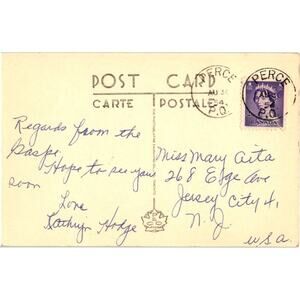 POST CARD
CARTE POSTALE
PERCE
P.Q.
PERCE
P.Q.
Regards from the
Gaspe.
Hope to see you
soon
Love
Kathryn Hodge
Miss Mary Aita
268 Ege Ave
Jersey City 4,
N. J.
U.S.A.